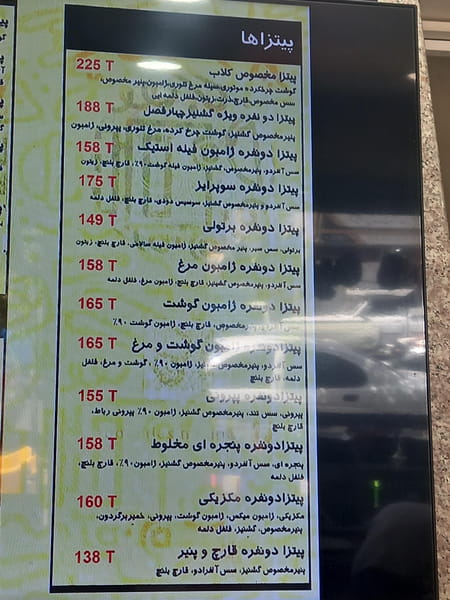 پیتزاها
پیتزا مخصوص کلاب 225 T
گوشت چرخکرده موتوری،سینه مرغ تنوری،ژامبون،پنیر مخصوص،
سس مخصوص،قارچ،ذرت،زیتون،فلفل دلمه ایی
پیتزا دو نفره ویژه گشنیز چهارفصل 188 T
پنیرمخصوص گشنیز، گوشت چرخ کرده، مرغ تنوری، پپرونی، ژامبون
پیتزا دونفره ژامبون فیله استیک 158 T
سس آلفردو، پنیرمخصوص گشنیز، ژامبون فیله گوشت ۹۰٪، قارچ بلنچ، زیتون
پیتزا دونفره سوپرایز 175 T
سس آلفردو و پنیرمخصوص گشنیز، سوسیس دودی، قارچ بلنچ، فلفل دلمه
پیتزا دونفره برتولی 149 T
برتولی، سس سیر، پنیر مخصوص گشنیز، ژامبون فیله سالامی، قارچ بلنچ، زیتون
پیتزا دونفره ژامبون مرغ 158 T
سس آلفردو، پنیرمخصوص گشنیز، قارچ بلنچ، ژامبون مرغ، فلفل دلمه
پیتزا دونفره ژامبون گوشت 165 T
پنیرمخصوص، قارچ بلنچ، ژامبون گوشت ۹۰٪
پیتزادونفره ژامبون گوشت و مرغ 165 T
سس آلفردو، پنیرمخصوص ژامبون ۹۰٪، گوشت و مرغ، فلفل
دلمه، قارچ بلنچ
پیتزادونفره پپرونی 155 T
پپرونی، سس تند، پنیرمخصوص گشنیز، ژامبون ۹۰٪ پپرونی رباط،
قارچ بلنچ
پیتزادونفره پنجره ای مخلوط 158 T
پنجره ای، سس آلفردو، پنیرمخصوص گشنیز، ژامبون۹۰٪، قارچ بلنچ،
فلفل دلمه
پیتزادونفره مکزیکی 160 T
مکزیکی، ژامبون میکس، ژامبون گوشت، پپرونی، خمیربرگردون،
پنیرمخصوص، گشنیز، فلفل دلمه
پیتزا دونفره قارچ و پنیر 138 T
پنیرمخصوص گشنیز، سس آلفرادو، قارچ بلنچ